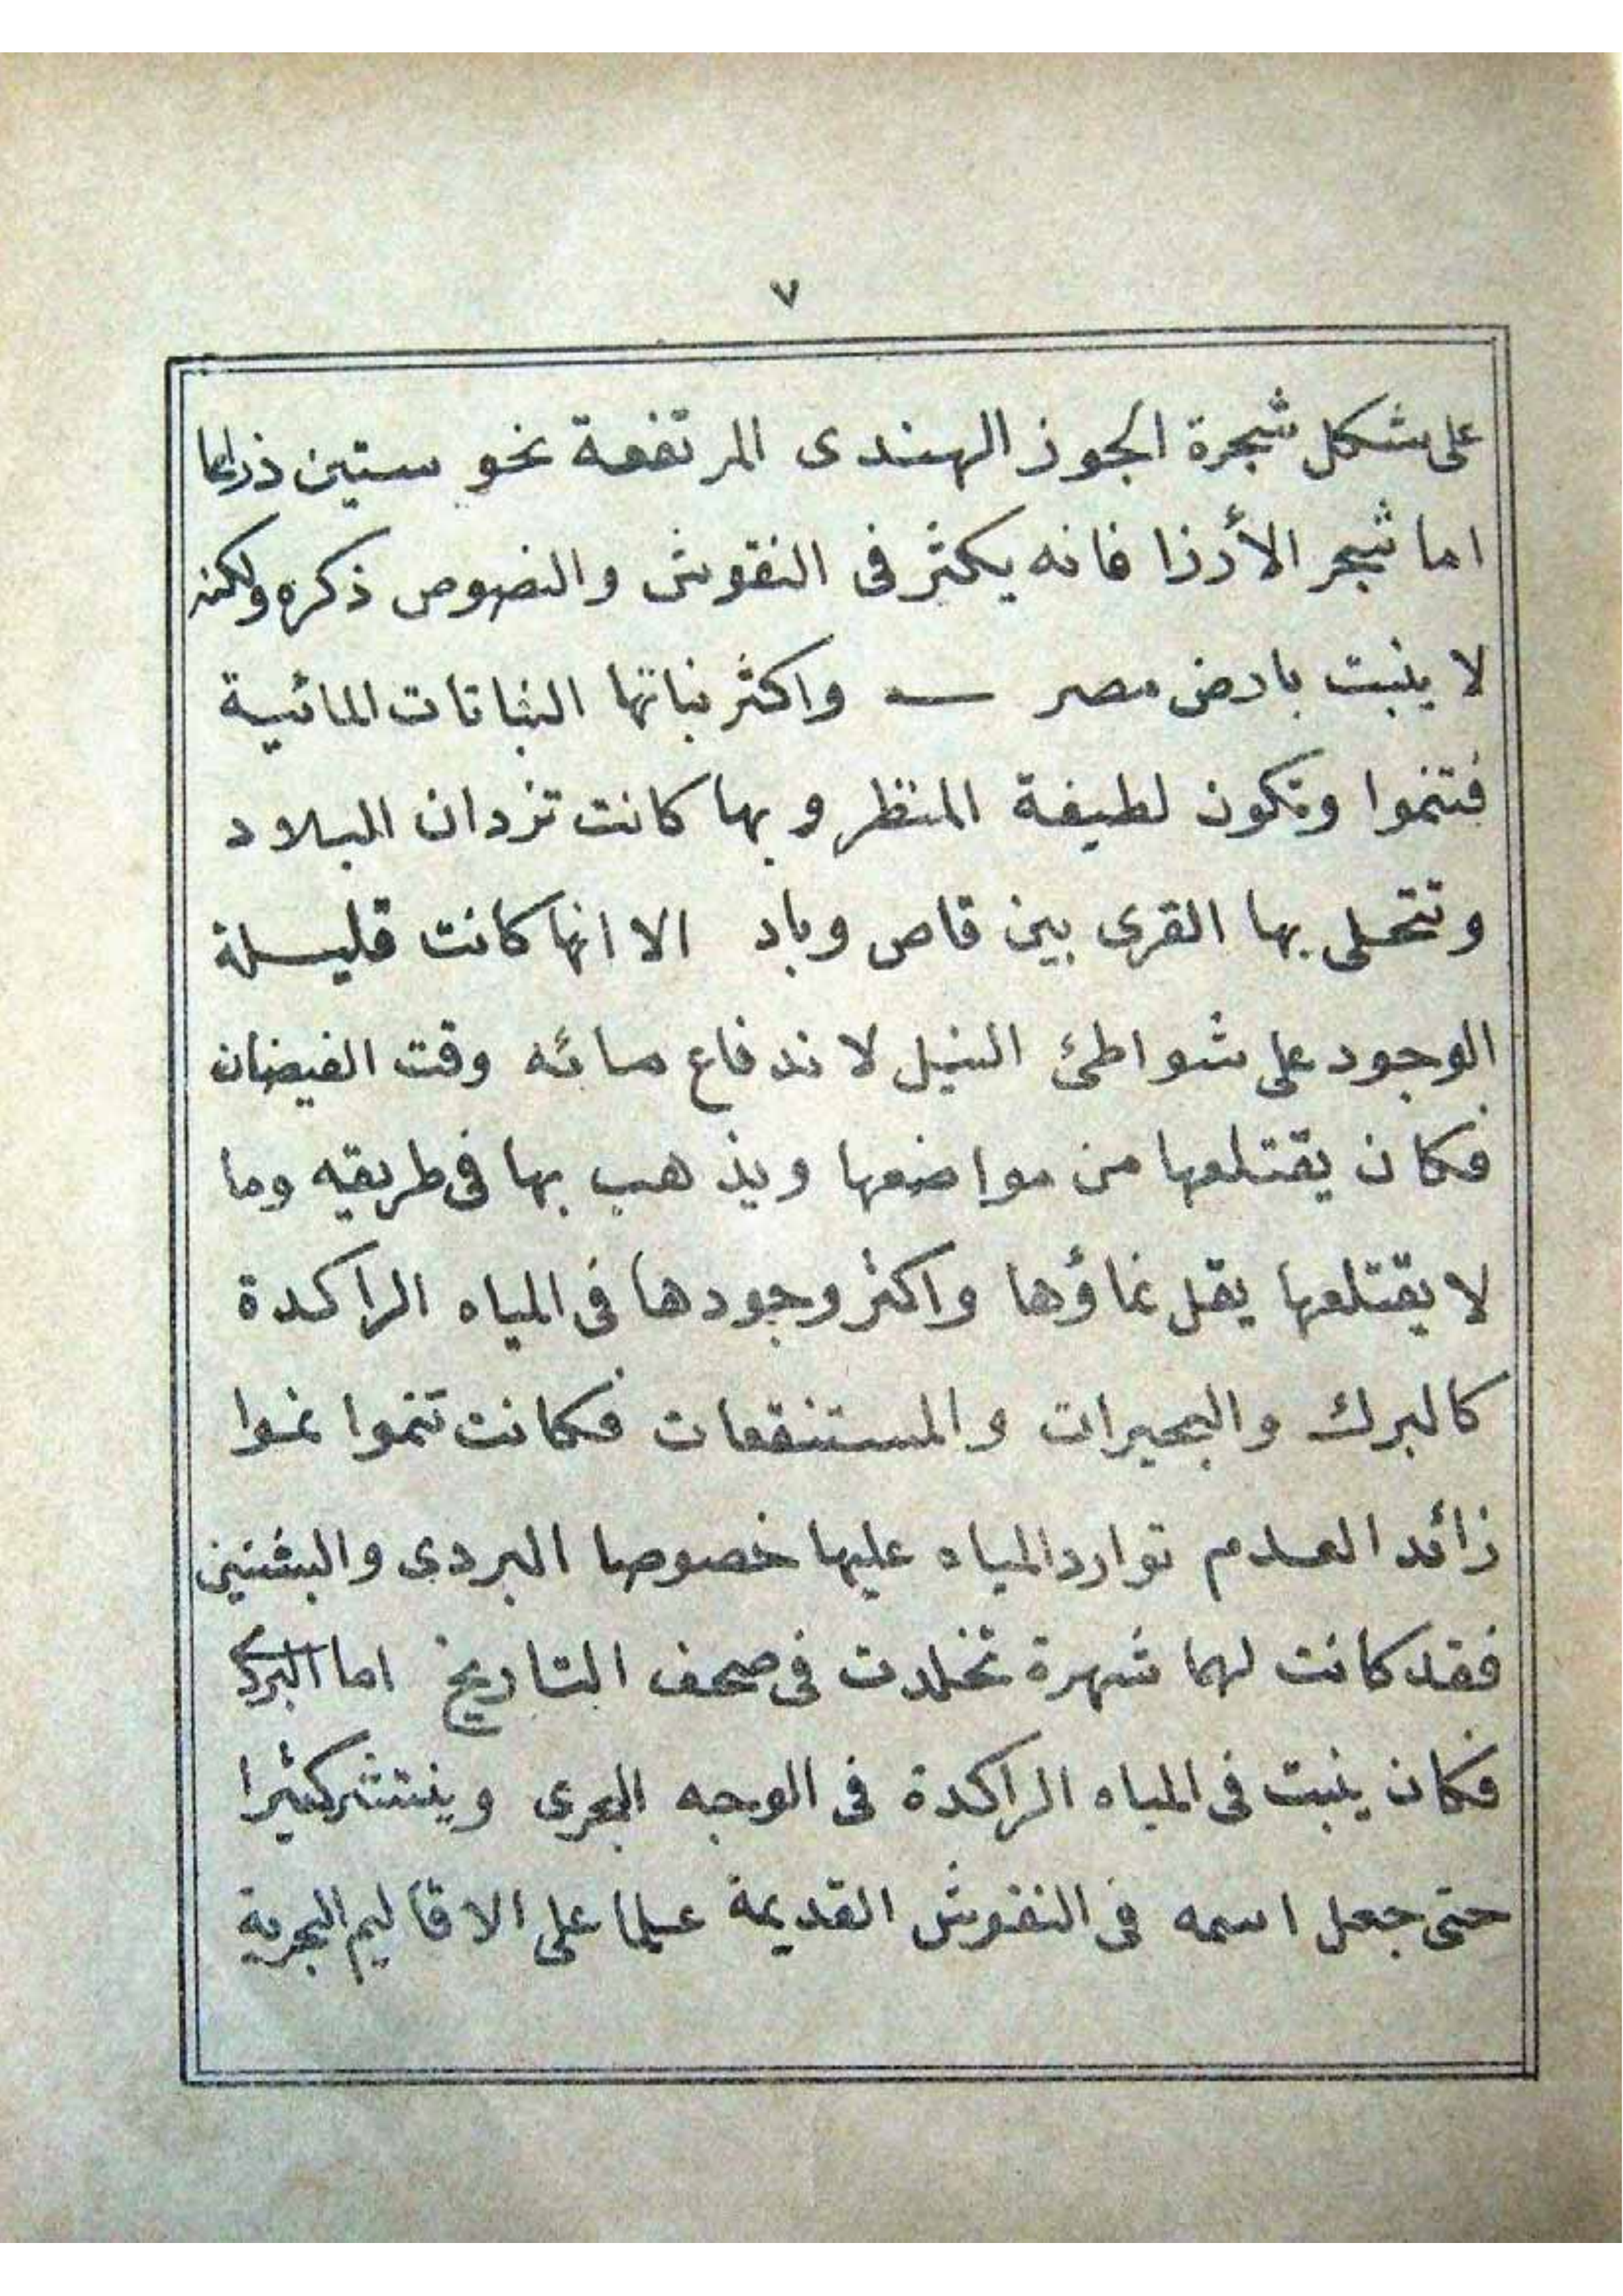 ٧
على شكل شجرة الجوز الهندى المرتفعة نحو ستين ذراعا
اما شجر الأرزا فانه يكثر فى النقوش والنصوص ذكره ولكنه
لا ينبت بارض مصر — واكثر نباتها النباتات المائية
فتنموا وتكون لطيفة المنظر وبها كانت تزدان البلاد
وتتحلى بها القرى بين قاص وباد الا انها كانت قليلة
الوجود على شواطئ النيل لاندفاع مائه وقت الفيضان
فكان يقتلعها من مواضعها ويذهب بها فى طريقه وما
لا يقتلعها يقل نماؤها واكثر وجودها فى المياه الراكدة
كالبرك والبحيرات والمستنقعات فكانت تنموا نموا
زائدا لعدم توارد المياه عليها خصوصا البردى والبشنين
فقد كانت لهما شهرة تخلدت فى صحف التاريخ اما البردى
فكان ينبت فى المياه الراكدة فى الوجه البحرى وينتشر كثيرا
حتى جعل اسمه فى النقوش القديمة علما على الاقاليم البحرية